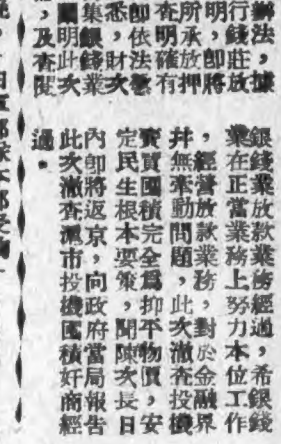 辦法，據
行錢莊放
明，卽將
所承放押
查明確有
卽依法懲
悉，財次
集銀錢業
闡明此次
，及查閱
銀錢業放款業務經過，希銀錢
業在正當業務上努力本位工作
，經營放款業務，對於金融界
幷無牽動問題，此次澈查投機
賣買國積完全爲抑平物價，安
定民生根本要策，聞陳次長日
內卽將返京，向政府當局報告
此次澈查滬市投機國積奸商經
過。